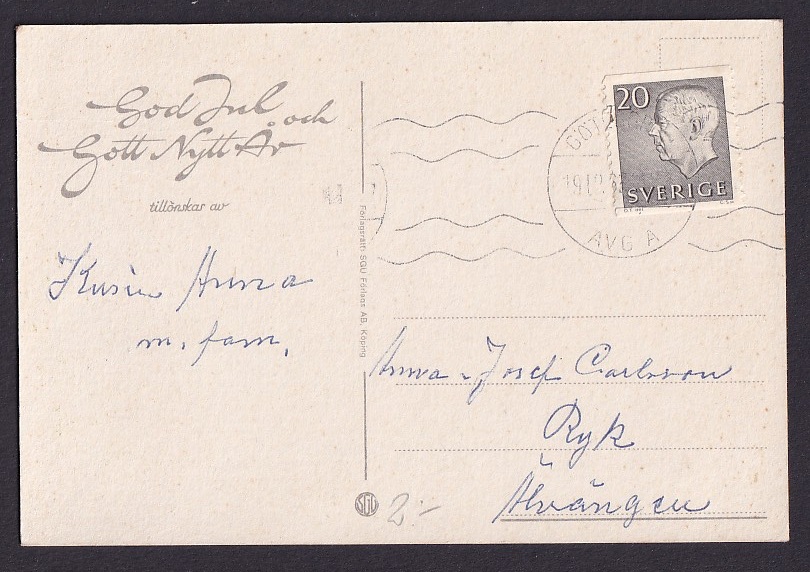 God Jul och
Gott Nytt År
tillönskas av
Kusin Anna
m. fam.
Förlagsrätt: SGU Förlags AB, Köping
20
SVERIGE
GÖT
1912
AVG A
Anna o Josef Carlsson
Ryk
Älvängen
SGU
2:-